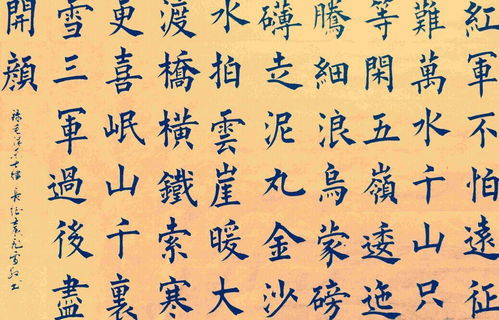 紅軍不怕遠征
難萬水千山只
等閑五嶺逶迤
騰細浪烏蒙磅
礴走泥丸金沙
水拍雲崖暖大
渡橋橫鐵索寒
更喜岷山千裏
雪三軍過後盡
開顏
七律長征